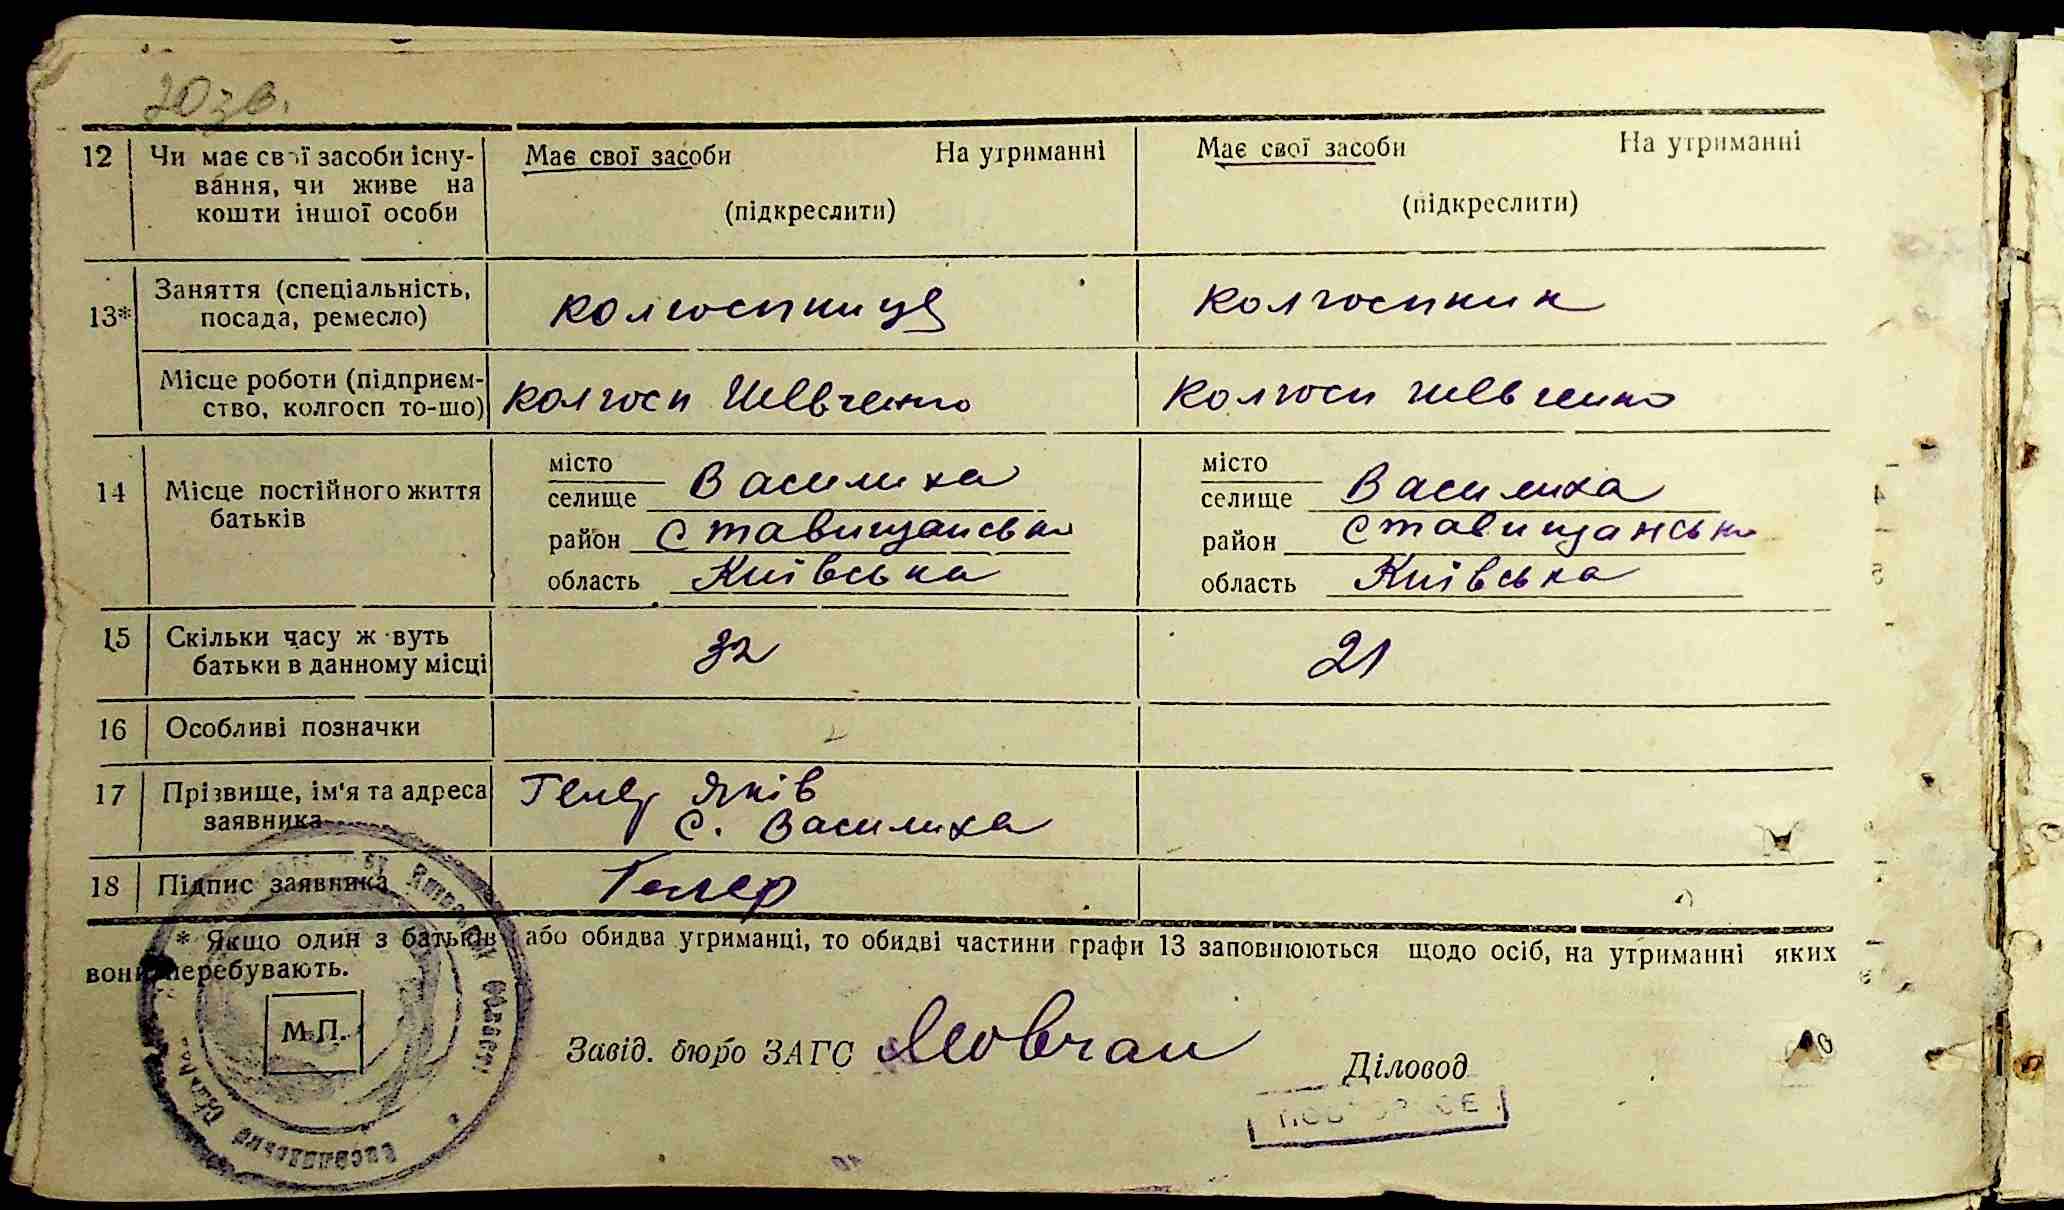 20зв.
12 Чи має свої засоби існу- Має свої засоби На утриманні Має свої засоби На утриманні
вання, чи живе на
кошти іншої особи (підкреслити) (підкреслити)
13* Заняття (спеціальність, посада, ремесло) колгоспниця колгоспник
Місце роботи (підприєм-
ство, колгосп то-що) колгосп Шевченко колгосп Шевченко
14 Місце постійного життя батьків
місто
селище Василиха
район Ставищанськ
область Київська
місто
селище Василиха
район Ставищанськ
область Київська
15 Скільки часу ж вуть
батьки в данному місці 32 21
16 Особливі позначки
17 Прізвище, ім'я та адреса Гелер Яків
заявника с. Василиха
18 Підпис заявника Гелер
* Якщо один з батьків або обидва утриманці, то обидві частини графи 13 заповнюються щодо осіб, на утриманні яких
вони перебувають.
М.П.
Завід. бюро ЗАГС Мовчан
Діловод